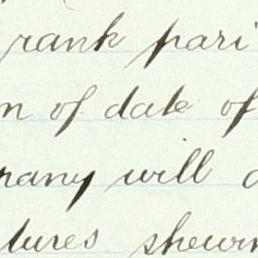 rank pari
n of date of
pany will
tures shewin